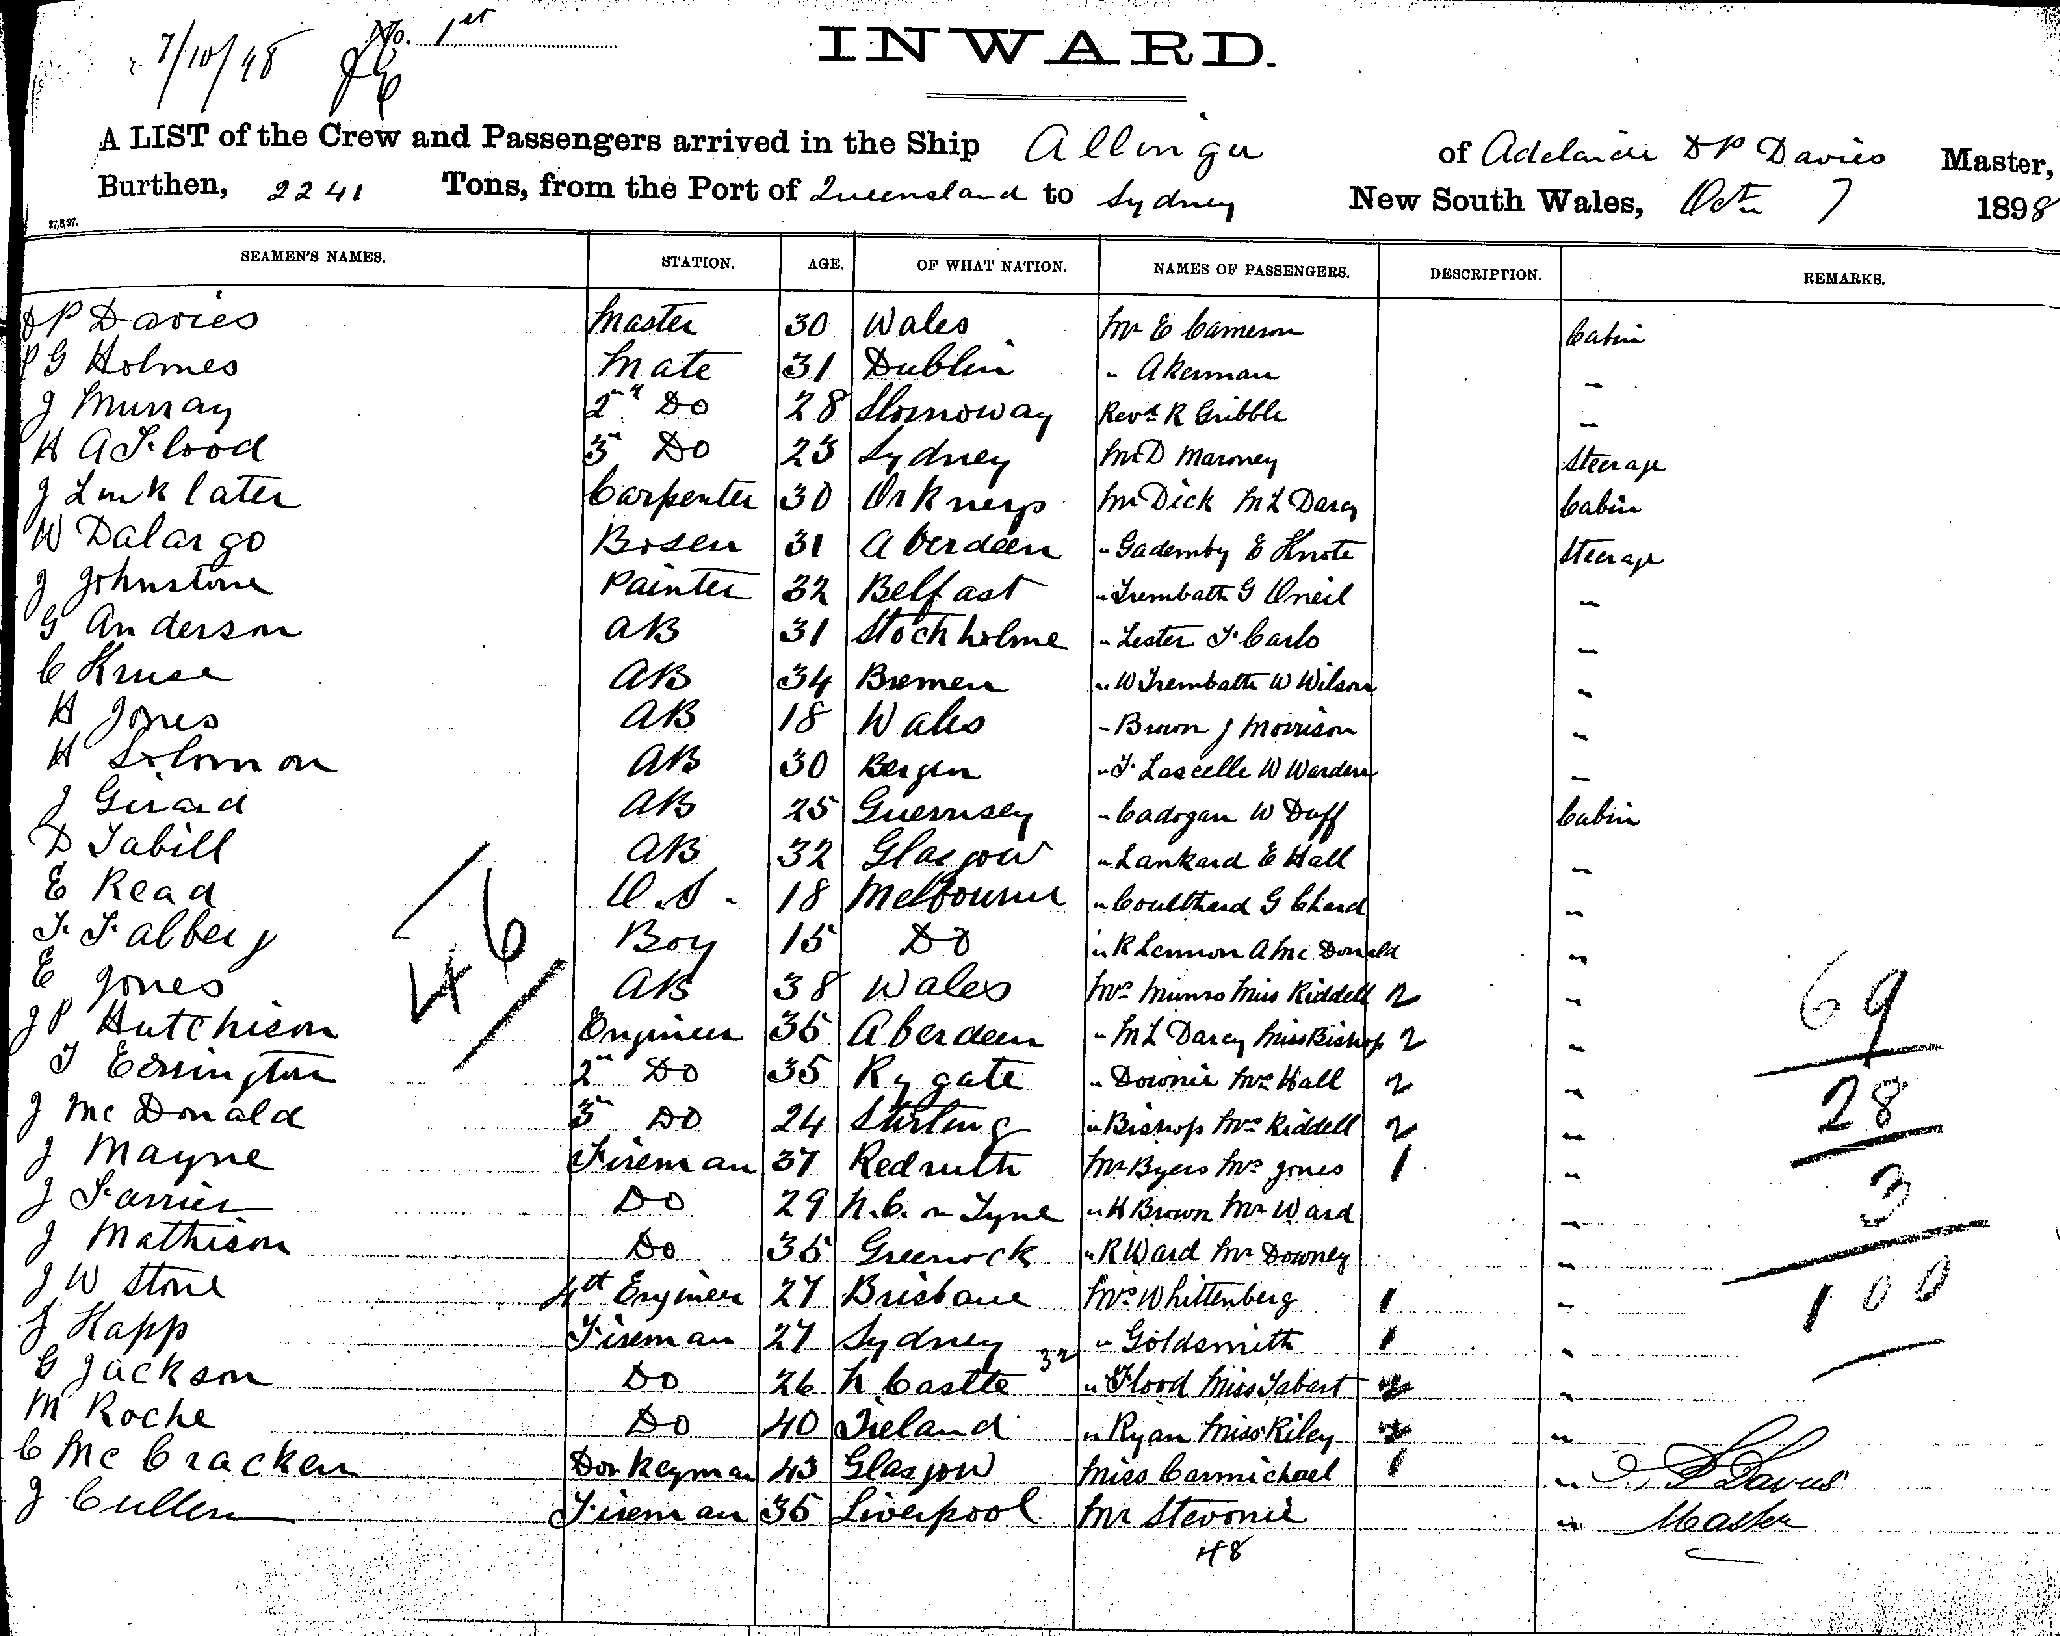 7/10/98 No. 1st
INWARD.
A LIST of the Crew and Passengers arrived in the Ship Allinga of Adelaide D P Davies Master,
Burthen, 2241 Tons, from the Port of Queensland to Sydney New South Wales, Octr 7 1898
SEAMEN'S NAMES. STATION. AGE. OF WHAT NATION. NAMES OF PASSENGERS. DESCRIPTION. REMARKS.
D P Davies Master 30 Wales Mr E Cameron Cabin
P G Holmes Mate 31 Dublin " Akerman "
J Murray 2nd Do 28 Stornoway Revd R Gribble "
H A Flood 3 Do 23 Sydney Mr D Maroney Steerage
J Linklater Carpenter 30 Orkneys Mr Dick M L Darcy Cabin
W Dalargo Bosen 31 Aberdeen " Gademby E Knote Steerage
J Johnstone Painter 32 Belfast " Trembath G Oneil "
G Anderson AB 31 Stockholme " Lester F Carlo "
C Kruse AB 34 Bremen " W Trembath W Wilson "
H Jones AB 18 Wales " Brown J Morrison "
H Solomon AB 30 Bergen " F Lascelle W Warden "
J Girard AB 25 Guernsey " Cadogan W Duff Cabin
D Tabill AB 32 Glasgow " Lankard E Hall "
E Read O.S. 18 Melbourne " Coulthard G Chard "
F Falberg Boy 15 Do " R Lennon A McDonald "
E Jones AB 38 Wales Mrs Munro Miss Riddell 2 "
J P Hutchison Engineer 35 Aberdeen " M L Darcy Miss Bishop 2 "
T Errington 2nd Do 35 Rygate " Downie Mrs Hall 2 "
J McDonald 3 Do 24 Stirling " Bishop Mrs Riddell 2 "
J Mayne Fireman 37 Redruth Mr Byers Mrs Jones 1 "
J Farrier Do 29 N.C. on Tyne " H Brown Mr Ward "
J Mathison Do 35 Greenock " R Ward Mr Downey "
J W Stone 4st Engineer 27 Brisbane Mrs Whittenberg 1 "
J Kapp Fireman 27 Sydney " Goldsmith 1 "
G Jackson Do 26 N Castle 32 " Flood Miss Tabart 2 "
M Roche Do 40 Ireland " Ryan Miss Riley "
C McCracken Donkeyman 43 Glasgow Miss Carmichael 1 "
J Cullen Fireman 35 Liverpool Mr Stevonie "
48
46
69
28
3
100
D P Davies
Master